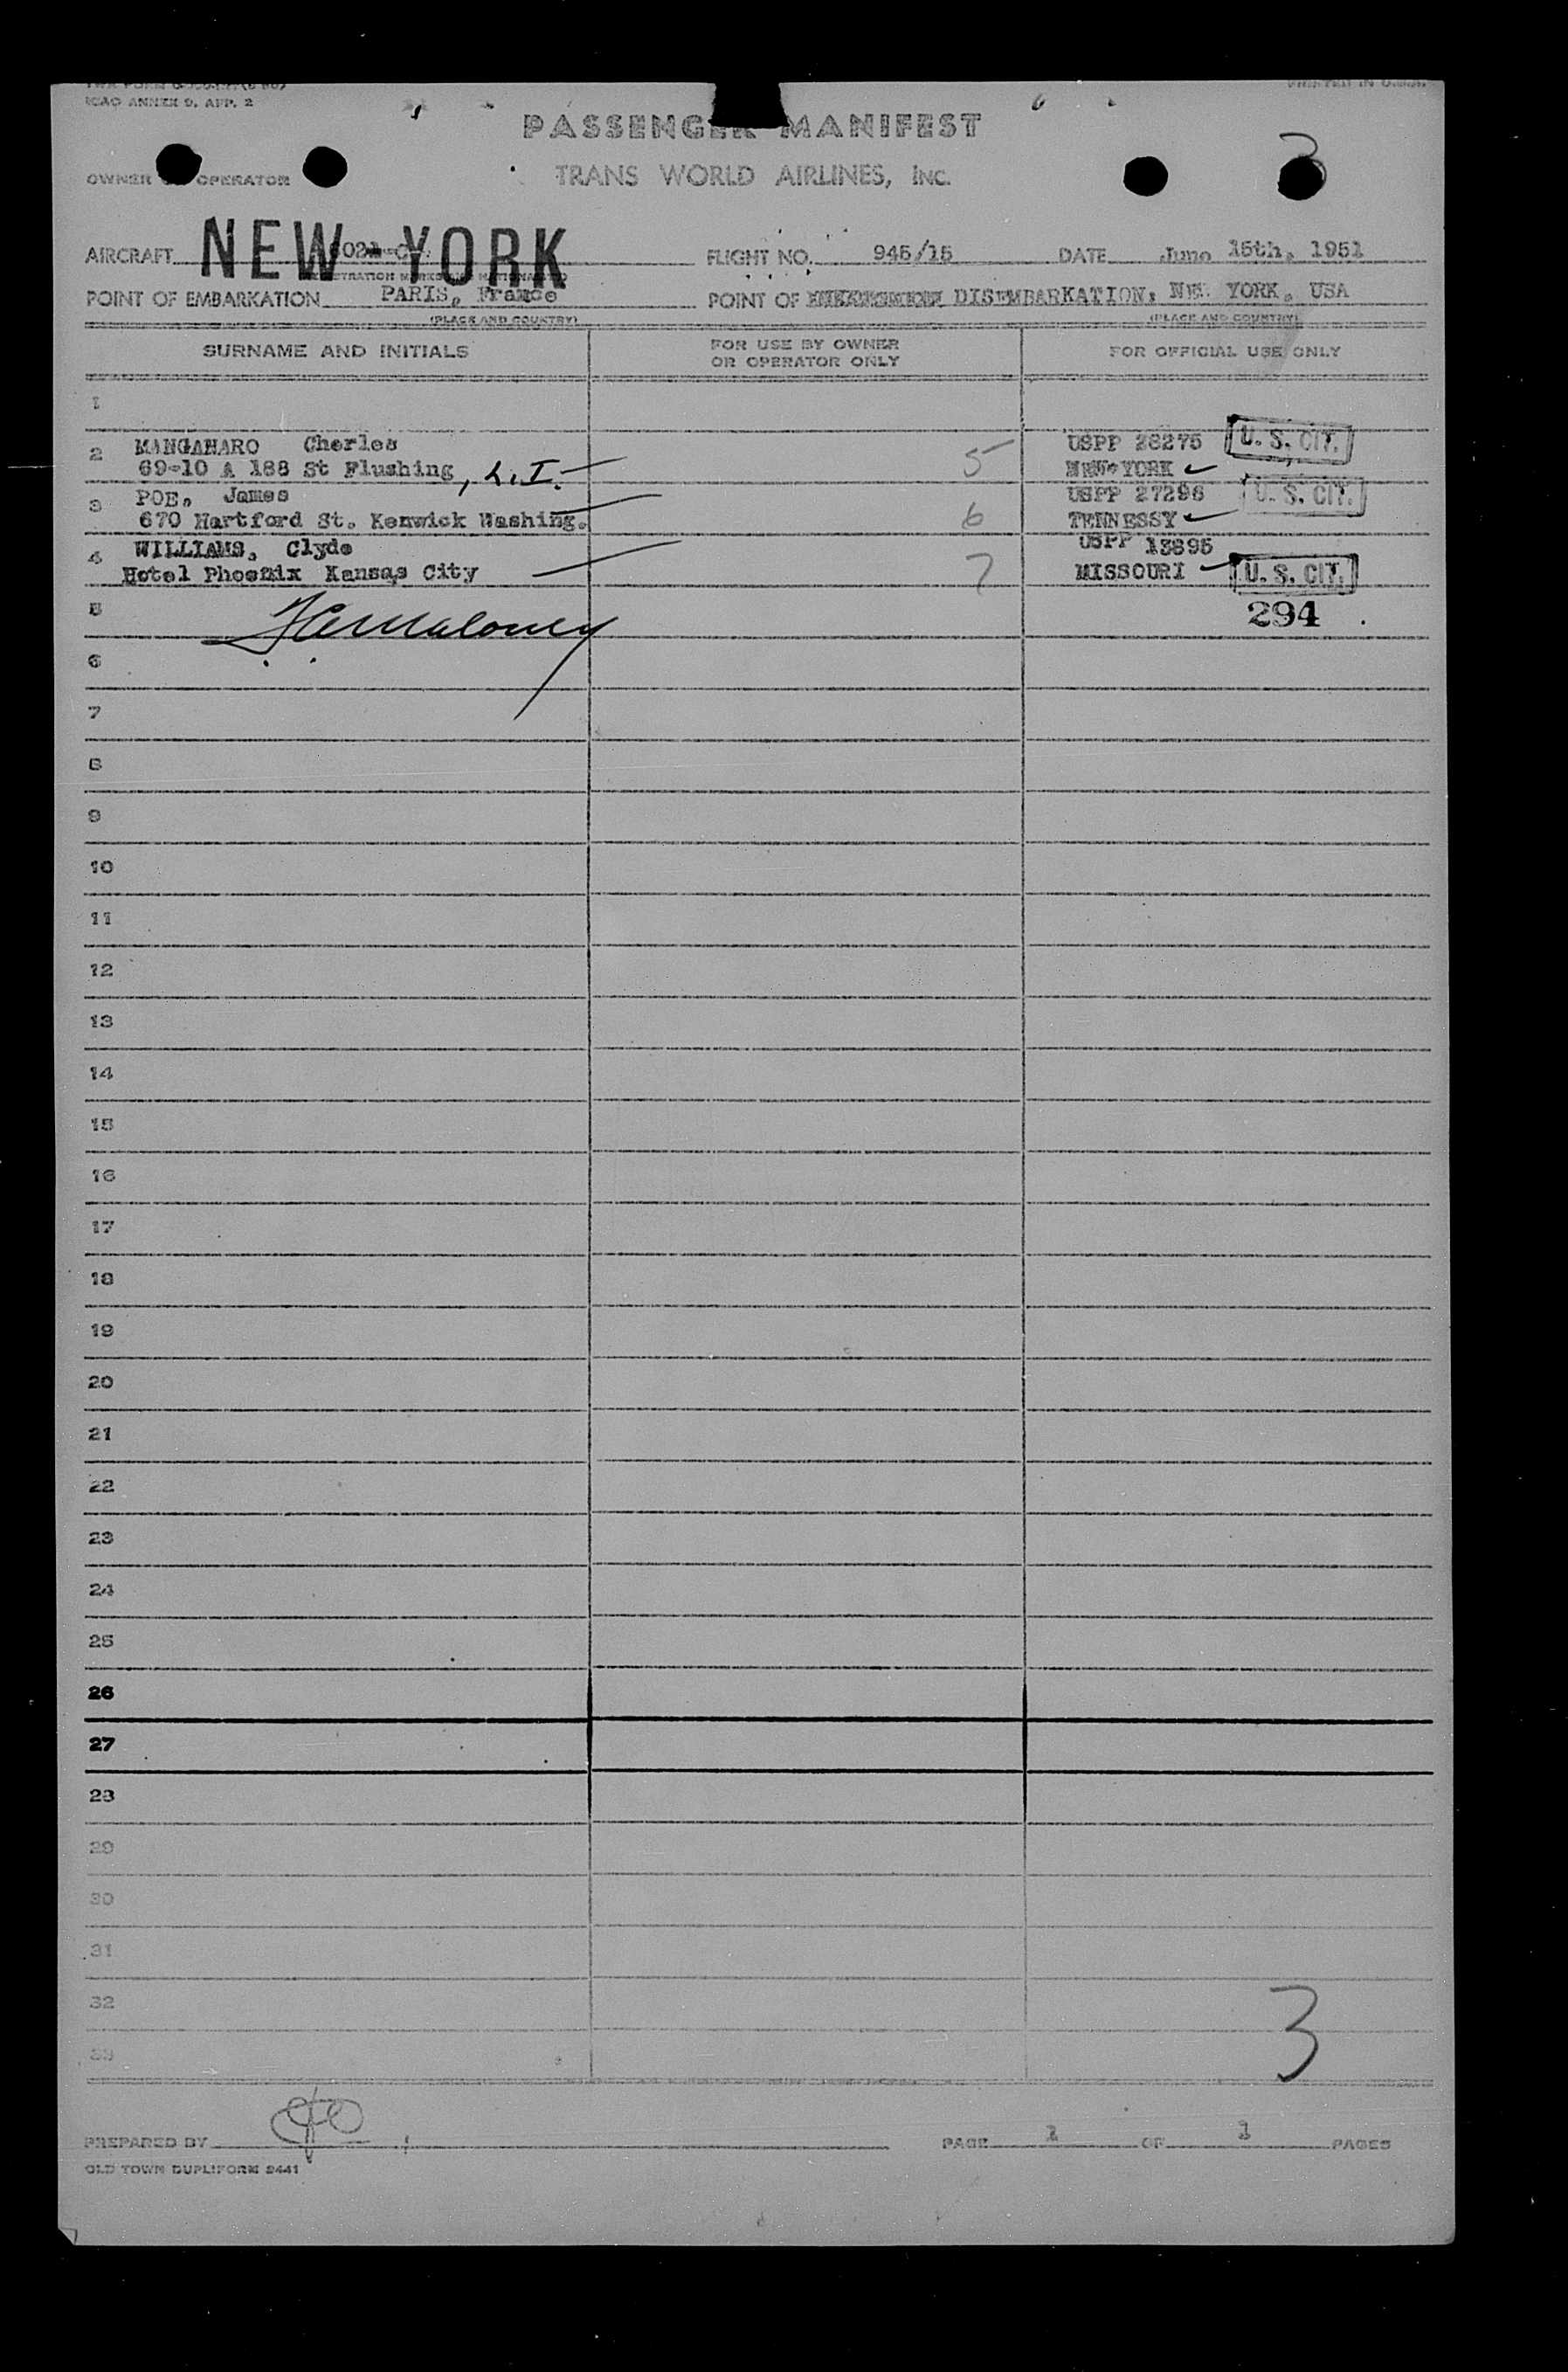 ICAO ANNEX 9, APP. 2
PRINTED IN U.S.A.
PASSENGER MANIFEST
3
OWNER OR OPERATOR TRANS WORLD AIRLINES, INC.
AIRCRAFT NEW YORK FLIGHT NO. 945/15 DATE June 15th, 1951
POINT OF EMBARKATION PARIS, France POINT OF DISEMBARKATION: NEW YORK, USA
(PLACE AND COUNTRY) (PLACE AND COUNTRY)
SURNAME AND INITIALS FOR USE BY OWNER OR OPERATOR ONLY FOR OFFICIAL USE ONLY
1
2 MANGANARO Charles 5 USPP 28275 U. S. CIT.
69-10 A 188 St Flushing, L.I. NEW YORK
3 POE, James 6 USPP 27296 U. S. CIT.
670 Hartford St. Kenwick Washing. TENNESSY
4 WILLIAMS, Clyde 7 USPP 13895
Hotel Phoenix Kansas City MISSOURI U. S. CIT.
5 294
6
7
8
9
10
11
12
13
14
15
16
17
18
19
20
21
22
23
24
25
26
27
28
29
30
31
32
33
3
PREPARED BY PAGE 1 OF 1 PAGES
OLD TOWN DUPLIFORM 9441